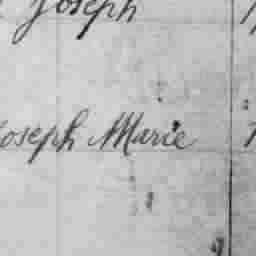 Joseph
Joseph Marie